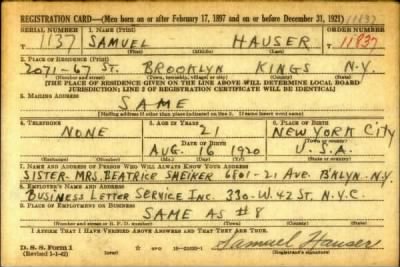 REGISTRATION CARD—(Men born on or after February 17, 1897 and on or before December 31, 1921) 11837
SERIAL NUMBER 1. NAME (Print) ORDER NUMBER
1137 SAMUEL HAUSER 11837
(First) (Middle) (Last)
2. PLACE OF RESIDENCE (Print)
2071-67 ST. BROOKLYN KINGS N.Y.
(Number and street) (Town, township, village or city) (County) (State)
[THE PLACE OF RESIDENCE GIVEN ON THE LINE ABOVE WILL DETERMINE LOCAL BOARD
JURISDICTION; LINE 2 OF REGISTRATION CERTIFICATE WILL BE IDENTICAL]
3. MAILING ADDRESS
SAME
[Mailing address if other than place indicated on line 2. If same insert word same]
4. TELEPHONE 5. AGE IN YEARS 6. PLACE OF BIRTH
NONE 21 NEW YORK CITY
DATE OF BIRTH (Town or county)
AUG. 16 1920 U.S.A.
(Exchange) (Number) (Mo.) (Day) (Yr.) (State or country)
7. NAME AND ADDRESS OF PERSON WHO WILL ALWAYS KNOW YOUR ADDRESS
SISTER-MRS. BEATRICE SHEIKER 6801-21 AVE. BKLYN. N.Y.
8. EMPLOYER'S NAME AND ADDRESS
BUSINESS LETTER SERVICE INC. 330-W. 42 ST. N.Y.C.
9. PLACE OF EMPLOYMENT OR BUSINESS
SAME AS #8
(Number and street or R. F. D. number) (Town) (County) (State)
I AFFIRM THAT I HAVE VERIFIED ABOVE ANSWERS AND THAT THEY ARE TRUE.
D. S. S. Form 1 Samuel Hauser
(Revised 1-1-42) (over) (Registrant's signature)